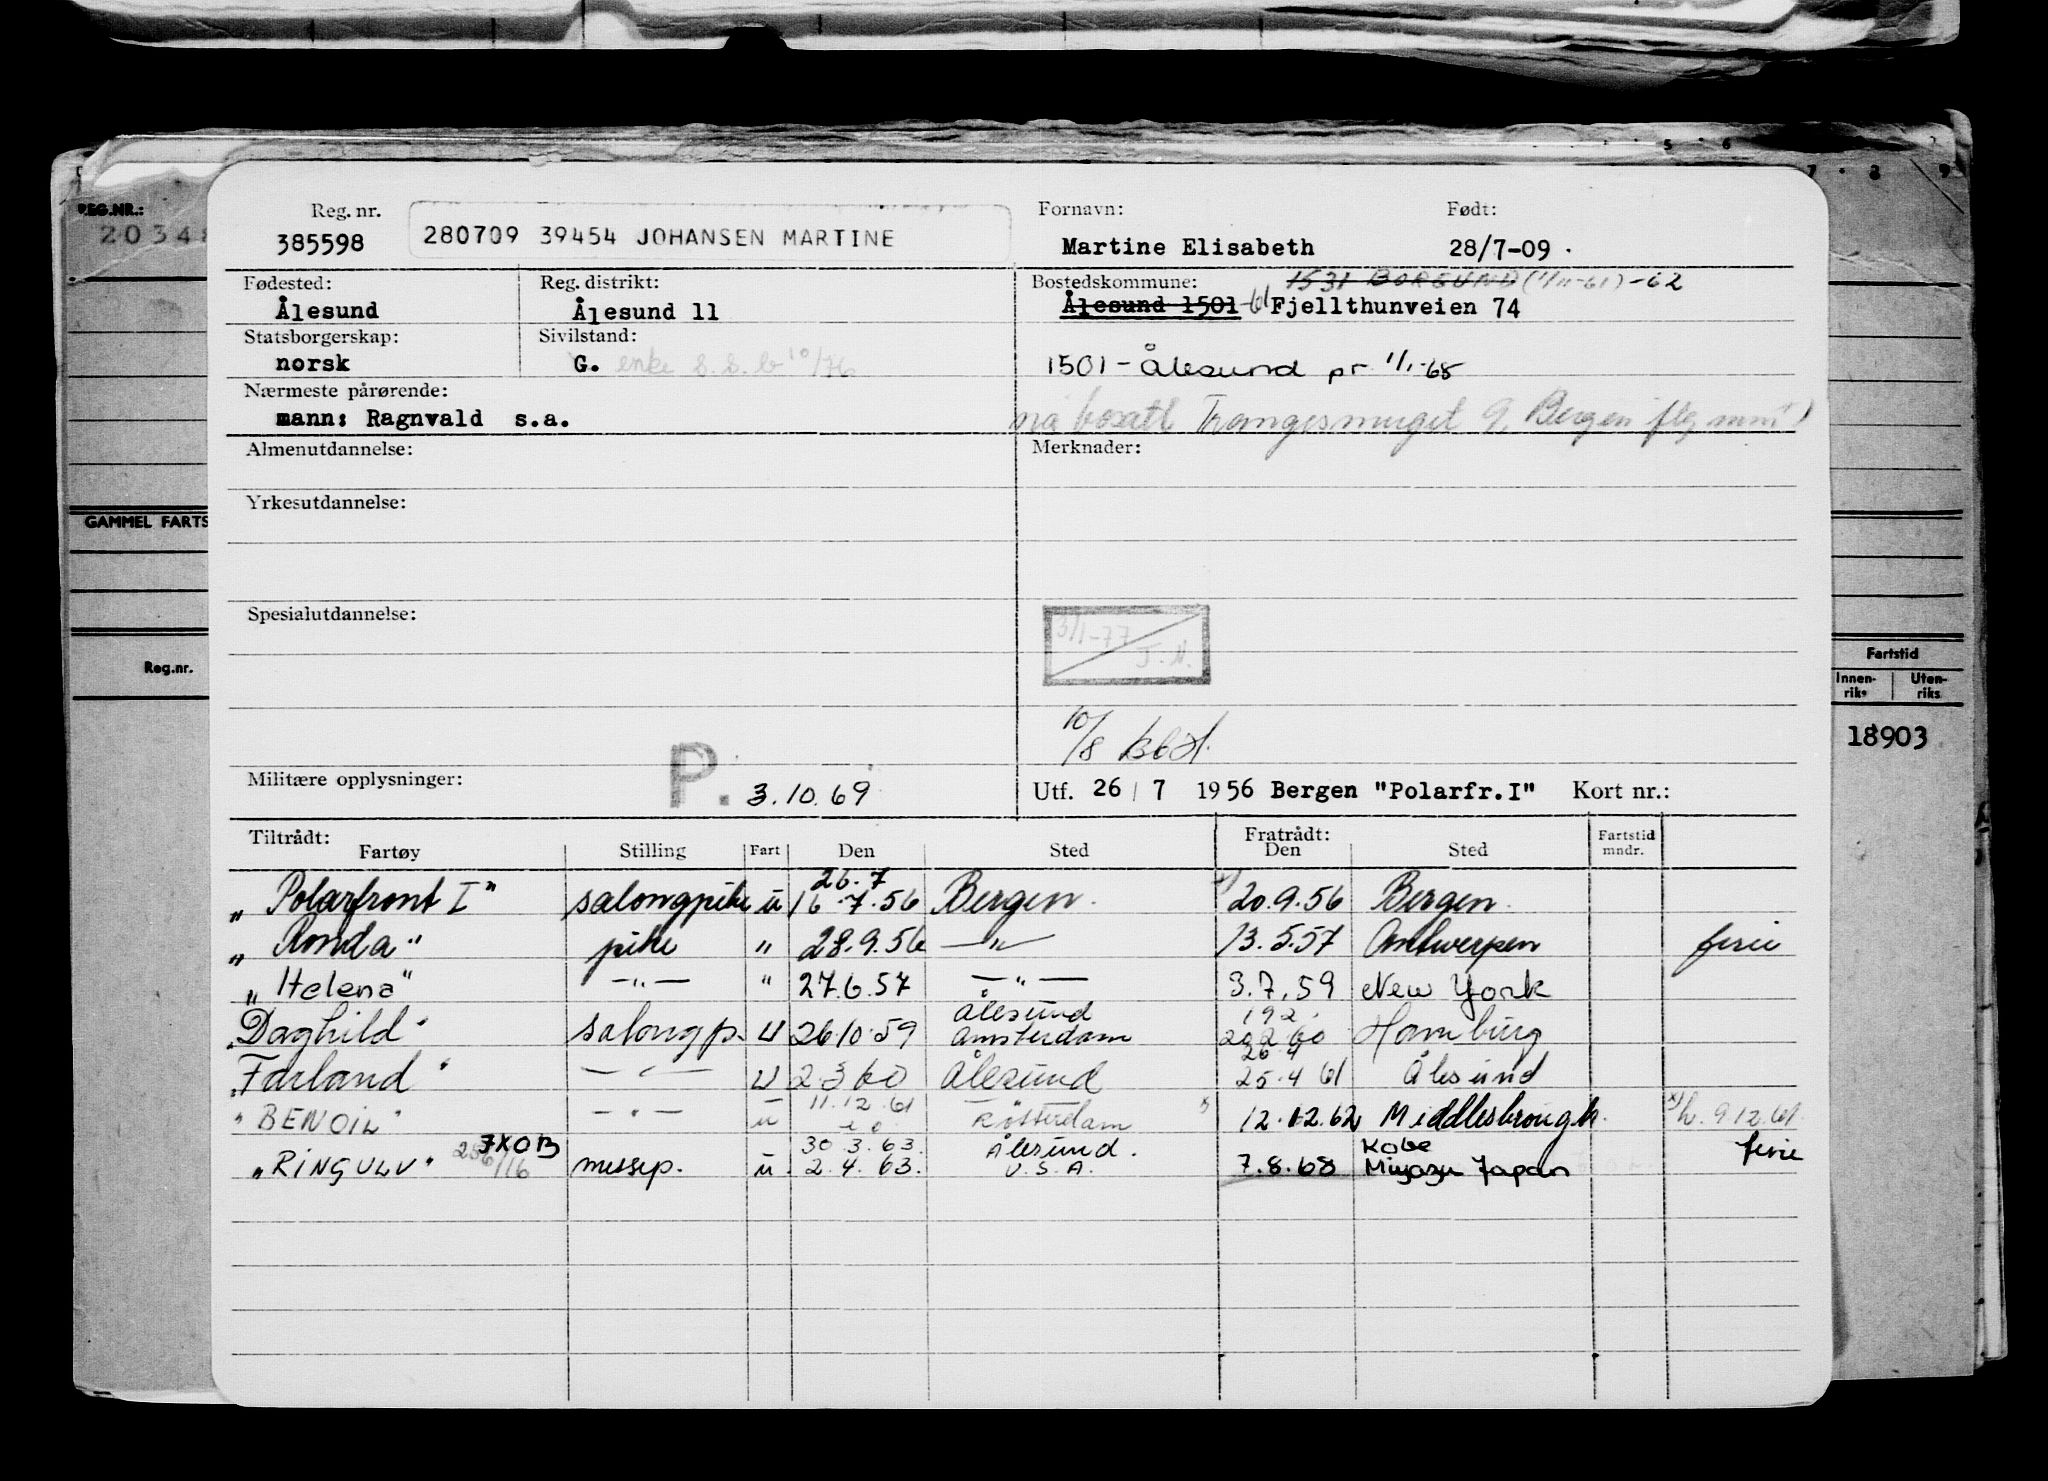 REG.NR.:
2034
5 6 7 8 9
Reg. nr. Fornavn: Født:
385598 280709 39454 JOHANSEN MARTINE Martine Elisabeth 28/7-09.
Fødested: Reg. distrikt: Bostedskommune: 1531 BORGUND (1/11-61)-62
Ålesund Ålesund 11 Ålesund 1501 -61 Fjellthunveien 74
Statsborgerskap: Sivilstand:
norsk G. enke s.s.b 10/76 1501 - Ålesund pr 1/1-68
Nærmeste pårørende:
mann: Ragnvald s.a. nå bosatt Trangesmuget 9, Bergen
Almenutdannelse: Merknader:
Yrkesutdannelse:
GAMMEL FARTS
Spesialutdannelse:
3/1-77
J.N.
Reg.nr. Fartstid
Innen-riks Uten-riks
10/8
18903
Militære opplysninger: P. 3.10.69 Utf. 26 / 7 1956 Bergen "Polarfr.I" Kort nr.:
Tiltrådt: Fratrådt: Fartstid
Fartøy Stilling Fart Den Sted Den Sted mndr.
26.7
„Polarfront I" salongpike u 16.7.56 Bergen. 20.9.56 Bergen.
„Ronda" pike " 28.9.56 —"— 13.5.57 Antwerpen ferie
„Helena" —"— " 27.6.57 —"— 3.7.59 New York
Ålesund 19.2.
„Daghild" salongp. U 26.10.59 Amsterdam 20.2.60 Hamburg
26.4
„Farland" —"— U 2.3.60 Ålesund 25.4.61 Ålesund
11.12.61
"BENOIL" —"— u Rotterdam x) 12.12.62 Middlesbrough. x) h. 9.12.61
JXOB 30.3.63. Ålesund. Kobe ferie
„RINGULV" 256/16 messep. u. 2.4.63. U.S.A. 7.8.68 Miyazu Japan